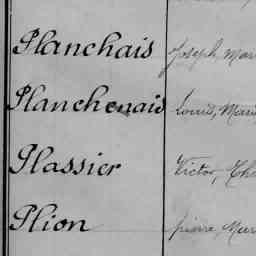 Planchais Joseph, Mar
Planchenais Louis, Marie
Plassier Victor, Th
Plion pierre, Mar